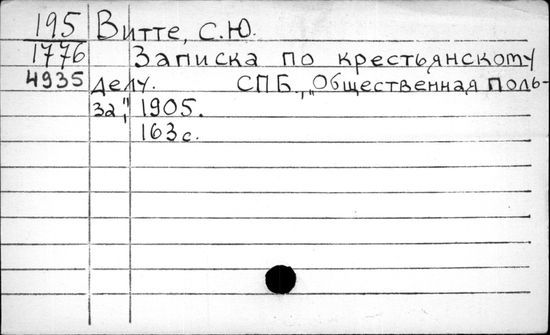 195 Витте, С.Ю.
1776 Записка по крестьянскому
4935 делу. СПБ., „Общественная поль-
за", 1905.
163 с.